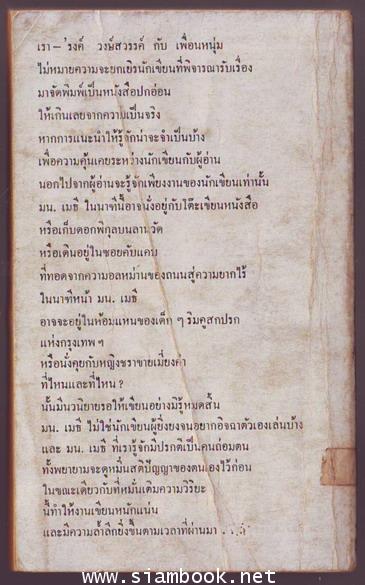 เรา – 'รงค์ วงษ์สวรรค์ กับ เพื่อนหนุ่ม
ไม่หมายความจะยกเยิรนักเขียนที่พิจารณารับเรื่อง
มาจัดพิมพ์เป็นหนังสือปกอ่อน
ให้เกินเลยจากความเป็นจริง
หากการแนะนำให้รู้จักน่าจะจำเป็นบ้าง
เพื่อความคุ้นเคยระหว่างนักเขียนกับผู้อ่าน
นอกไปจากผู้อ่านจะรู้จักเพียงงานของนักเขียนเท่านั้น
มน. เมธี ในนาทีนี้อาจนั่งอยู่กับโต๊ะเขียนหนังสือ
หรือเก็บดอกพิกุลบนลานวัด
หรือเดินอยู่ในซอยคับแคบ
ที่ทอดจากความอลหม่านของถนนสู่ความยากไร้
ในนาทีหน้า มน. เมธี
อาจจะอยู่ในห้อมแหนของเด็ก ๆ ริมคูสกปรก
แห่งกรุงเทพ ฯ
หรือนั่งคุยกับหญิงชราขายเมี่ยงคำ
ที่ไหนและที่ไหน ?
นั้นมีนวนิยายรอให้เขียนอย่างมิรู้หมดสิ้น
มน. เมธี ไม่ใช่นักเขียนผู้ยิ่งยงจนอยากอิจฉาตัวเองเล่นบ้าง
และ มน. เมธี ที่เรารู้จักมีปรกติเป็นคนถ่อมตน
ทั้งพยายามจะดูหมิ่นสติปัญญาของตนเองไว้ก่อน
ในขณะเดียวกับที่หมั่นเติมความวิริยะ
นี้ทำให้งานเขียนหนักแน่น
และมีความล้ำลึกยิ่งขึ้นตามเวลาที่ผ่านมา . . .
www.siambook.net